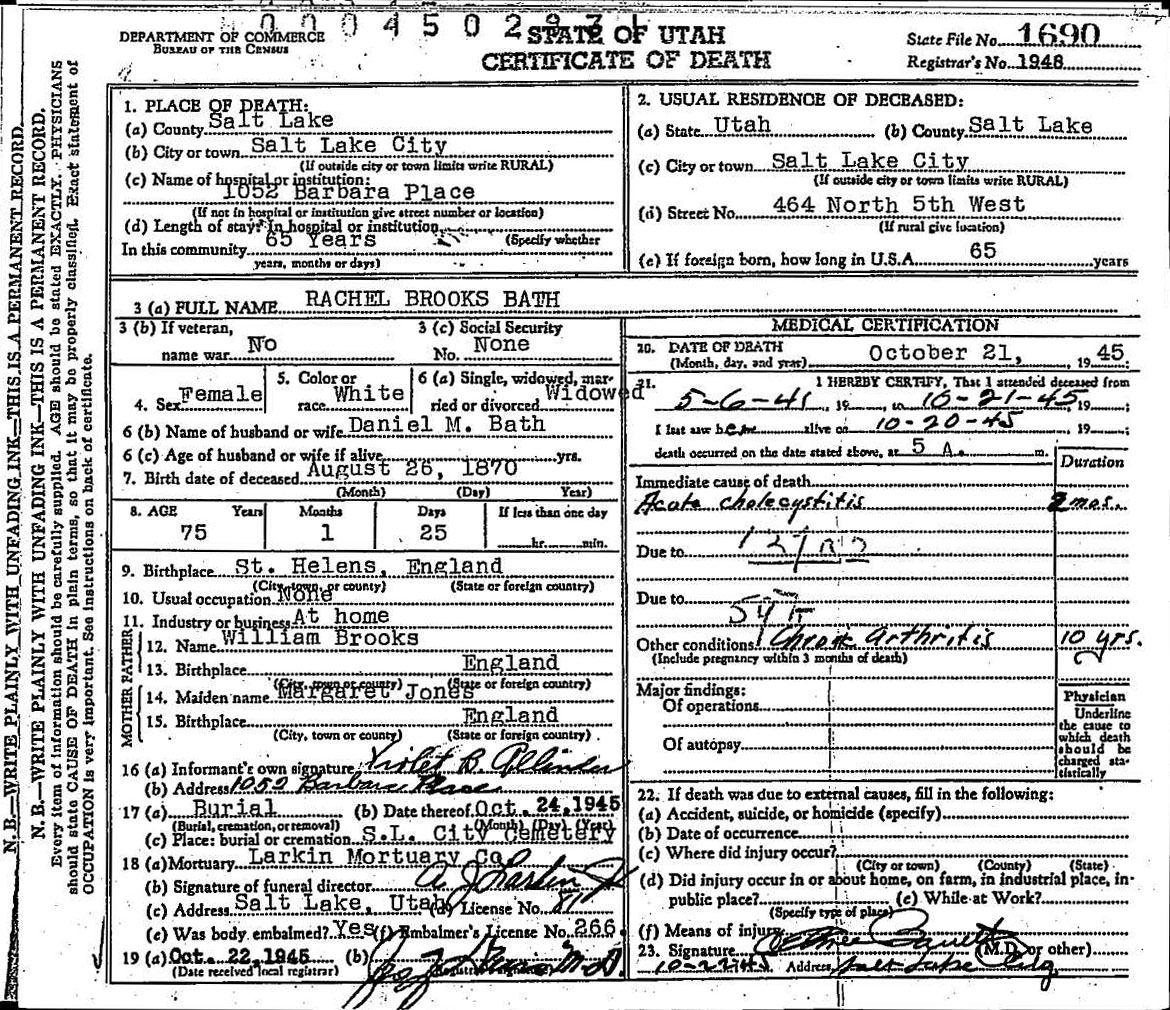 0004502
DEPARTMENT OF COMMERCE
BUREAU OF THE CENSUS
STATE OF UTAH
CERTIFICATE OF DEATH
State File No. 1690
Registrar's No. 1948
N. B.—WRITE PLAINLY WITH UNFADING INK—THIS IS A PERMANENT RECORD.
N. B.—WRITE PLAINLY WITH UNFADING INK—THIS IS A PERMANENT RECORD.
Every item of information should be carefully supplied. AGE should be stated EXACTLY. PHYSICIANS
should state CAUSE OF DEATH in plain terms, so that it may be properly classified. Exact statement of
OCCUPATION is very important. See instructions on back of certificate.
1. PLACE OF DEATH:
(a) County Salt Lake
(b) City or town Salt Lake City
(If outside city or town limits write RURAL)
(c) Name of hospital or institution:
1052 Barbara Place
(If not in hospital or institution give street number or location)
(d) Length of stay: In hospital or institution
In this community 65 Years (Specify whether
years, months or days)
2. USUAL RESIDENCE OF DECEASED:
(a) State Utah (b) County Salt Lake
(c) City or town Salt Lake City
(If outside city or town limits write RURAL)
(d) Street No. 464 North 5th West
(If rural give location)
(e) If foreign born, how long in U.S.A. 65 years
3 (a) FULL NAME RACHEL BROOKS BATH
3 (b) If veteran, name war No
3 (c) Social Security No. None
4. Sex Female
5. Color or race White
6 (a) Single, widowed, married or divorced Widowed
6 (b) Name of husband or wife Daniel M. Bath
6 (c) Age of husband or wife if alive yrs.
7. Birth date of deceased August 26, 1870
(Month) (Day) Year)
8. AGE Years Months Days If less than one day
75 1 25 hr. min.
9. Birthplace St. Helens, England
(City, town, or county) (State or foreign country)
10. Usual occupation None
11. Industry or business At home
FATHER
12. Name William Brooks
13. Birthplace England
(City, town or county) (State or foreign country)
MOTHER
14. Maiden name Margaret Jones
15. Birthplace England
(City, town or county) (State or foreign country)
16 (a) Informant's own signature Violet B.
(b) Address 1052 Barbara Place
17 (a) Burial (b) Date thereof Oct. 24, 1945
(Burial, cremation, or removal) (Month) (Day) (Year)
(c) Place: burial or cremation S.L. City Cemetery
18 (a) Mortuary Larkin Mortuary Co
(b) Signature of funeral director A J Larkin Jr
(c) Address Salt Lake, Utah (d) License No.
(e) Was body embalmed? Yes (f) Embalmer's License No. 266
19 (a) Oct. 22, 1945 (b) M.D
(Date received local registrar) (Registrar's signature)
MEDICAL CERTIFICATION
20. DATE OF DEATH October 21, 1945
(Month, day, and year)
21. I HEREBY CERTIFY, That I attended deceased from
5-6-41, 19 to 10-21-45, 19 ;
I last saw her alive on 10-20-45, 19 ;
death occurred on the date stated above, at 5 A. m.
Duration
Immediate cause of death
Acute cholecystitis 2 mos.
Due to
Due to
Other conditions Chronic Arthritis 10 yrs.
(Include pregnancy within 3 months of death)
Major findings:
Of operations
Of autopsy
Physician
Underline
the cause to
which death
should be
charged sta-
tistically
22. If death was due to external causes, fill in the following:
(a) Accident, suicide, or homicide (specify)
(b) Date of occurrence
(c) Where did injury occur?
(City or town) (County) (State)
(d) Did injury occur in or about home, on farm, in industrial place, in
public place? (e) While at Work?
(Specify type of place)
(f) Means of injury
23. Signature (M.D. or other)
10-22-45 Address Salt Lake City